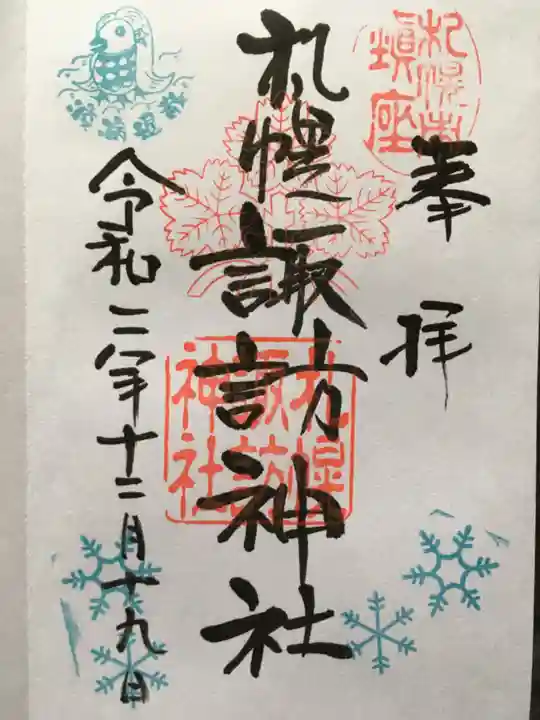 奉拝
札幌市鎮座
札幌諏訪神社
札幌諏訪神社
令和二年十二月十九日